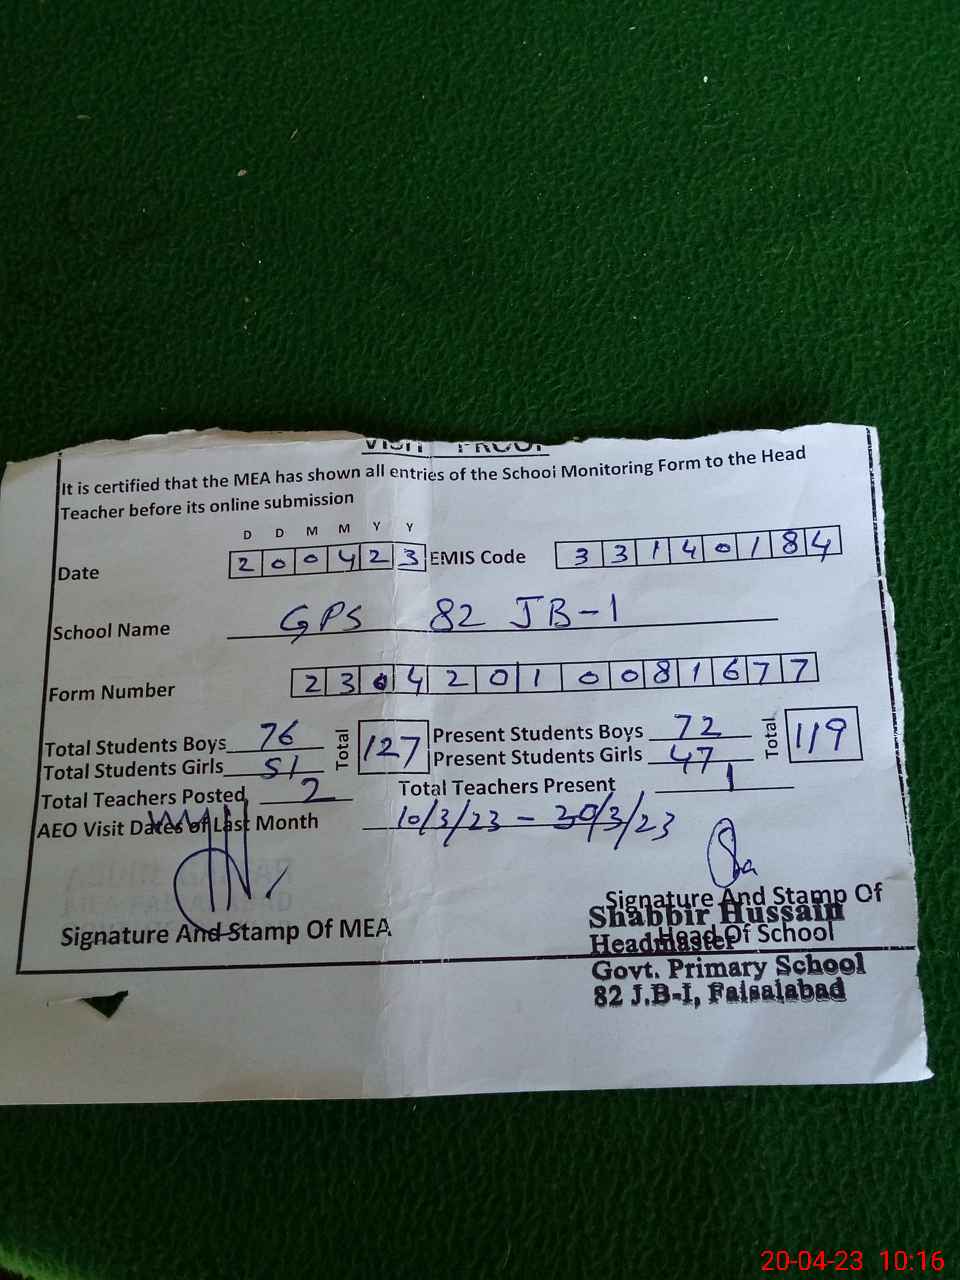 VISIT PROOF
It is certified that the MEA has shown all entries of the School Monitoring Form to the Head
Teacher before its online submission
D D M M Y Y
Date 200423 EMIS Code 33140184
School Name GPS 82 JB-1
Form Number 2304201 0081677
Total Students Boys 76 Total 127 Present Students Boys 72 Total 119
Total Students Girls 51 Present Students Girls 47
Total Teachers Posted 2 Total Teachers Present 1
AEO Visit Dates of Last Month 10/3/23 - 30/3/23
Signature And Stamp Of MEA
Signature And Stamp Of
Head Of School
Shabbir Hussain
Headmaster
Govt. Primary School
82 J.B-I, Faisalabad
20-04-23 10:16